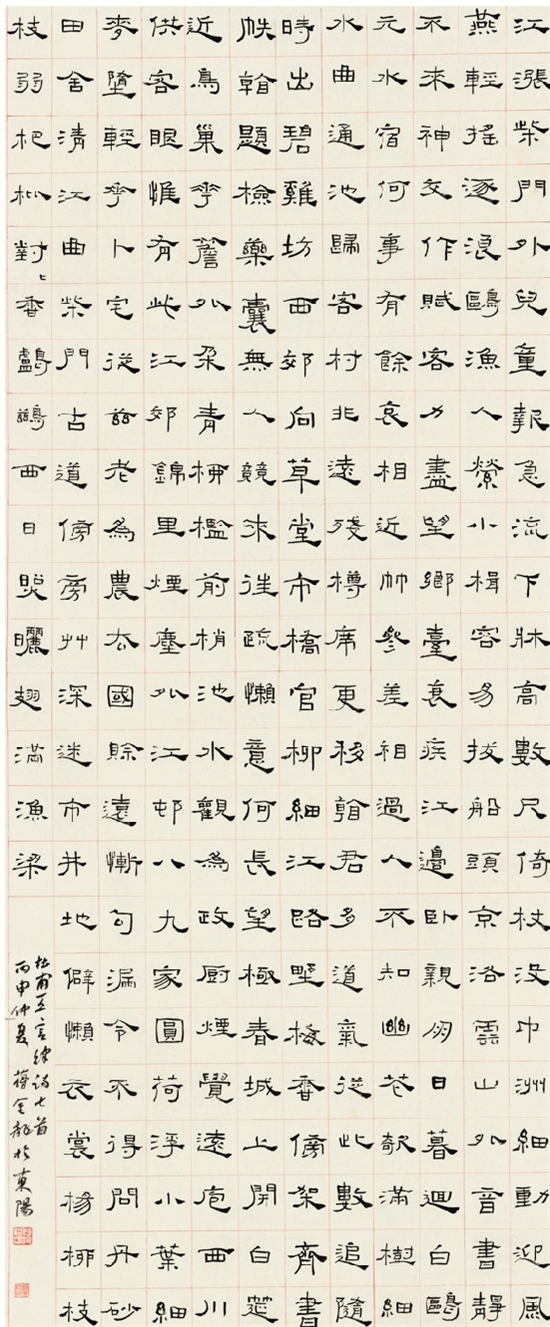 江漲柴門外兒童報急流下牀高數尺倚杖沒中洲細動迎風
燕輕搖逐浪鷗漁人縈小楫容易拔船頭京洛雲山外音書靜
不來神交作賦客力盡望鄉臺衰疾江邊臥親朋日暮迴白鷗
元水宿何事有餘哀相近竹參差相過人不知幽花欹滿樹細
水曲通池歸客村非遠殘樽席更移看君多道氣從此數追隨
時出碧雞坊西郊向草堂市橋官柳細江路野梅香傍架齊書
帙看題檢藥囊無人競來往疏懶意何長望極春城上開白筵
近鳥巢花簷外朵青柳檻前梢池水觀為政廚煙覺遠庖西川
供客眼惟有此江郊錦里煙塵外江邨八九家圓荷浮小葉細
麥墮輕花卜宅從茲老為農去國賒遠慚勾漏令不得問丹砂
田舍清江曲柴門古道傍旁艸深迷市井地僻懶衣裳楊柳枝
枝弱杷枇對々香鸕鶿西日照曬翅滿漁梁
杜甫五言律詩七首
丙申仲夏蔣金龍於東陽